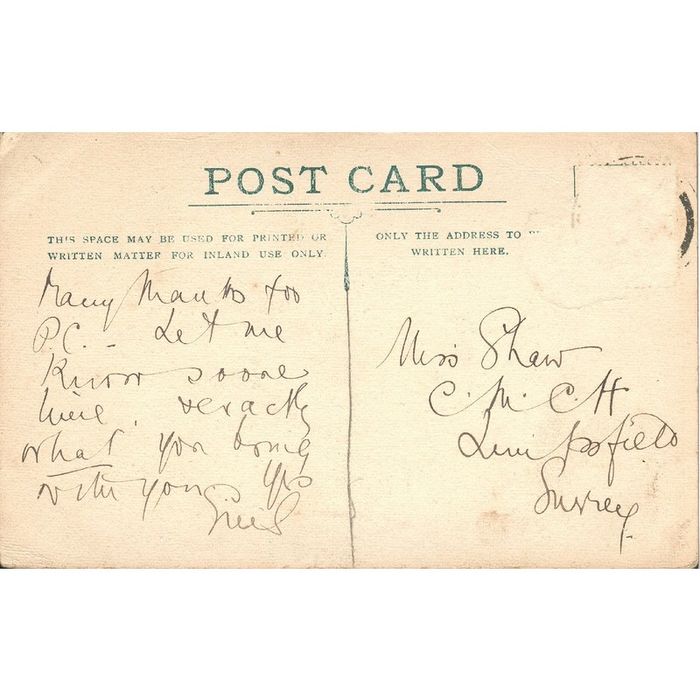 POST CARD
THIS SPACE MAY BE USED FOR PRINTED OR
WRITTEN MATTER FOR INLAND USE ONLY.
ONLY THE ADDRESS TO
WRITTEN HERE.
Many thanks for
P.C. – Let me
know some
time. & exactly
what you bring
with you. Yrs
Miss Shaw
C. M. C. H
Limpsfield
Surrey